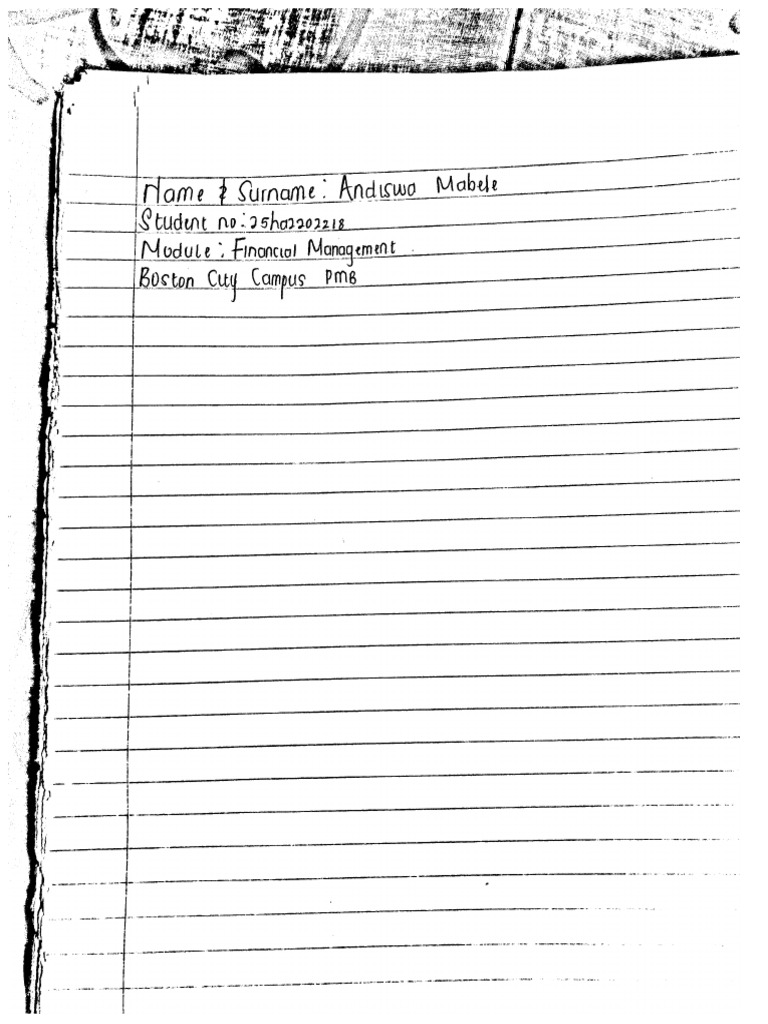 Name & Surname: Andiswa Mabele
Student no: 25ha2202218
Module: Financial Management
Boston City Campus PMB